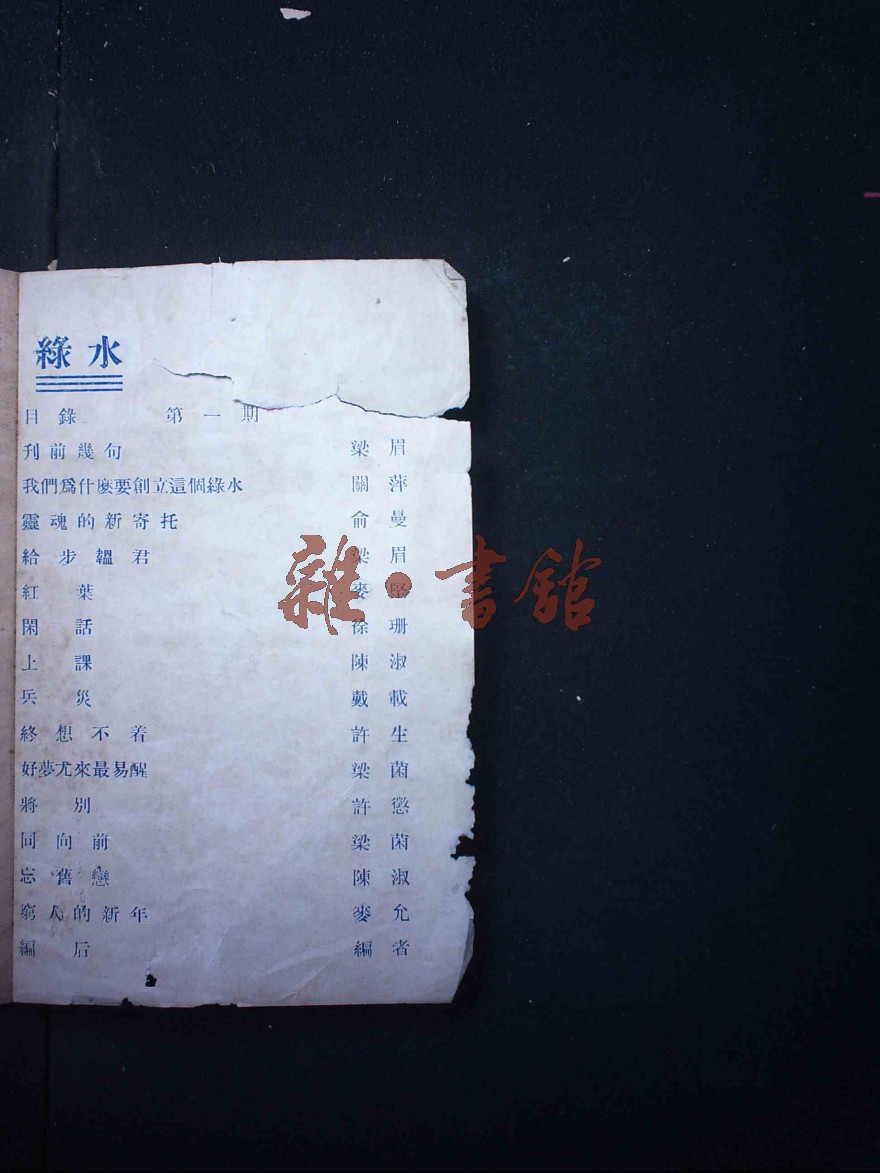 綠水
目錄 第一期
刊前幾句 梁眉
我們爲什麽要創立這個綠水 關萍
靈魂的新寄托 俞曼
給步韞君 梁眉
紅葉 麥堅
閑話 徐珊
上課 陳淑
兵災 戴載
終想不着 許生
好夢尤來最易醒 梁菌
將別 許懲
同向前 梁菌
忘舊戀 陳淑
窮人的新年 麥允
編后 編者
雜·書館